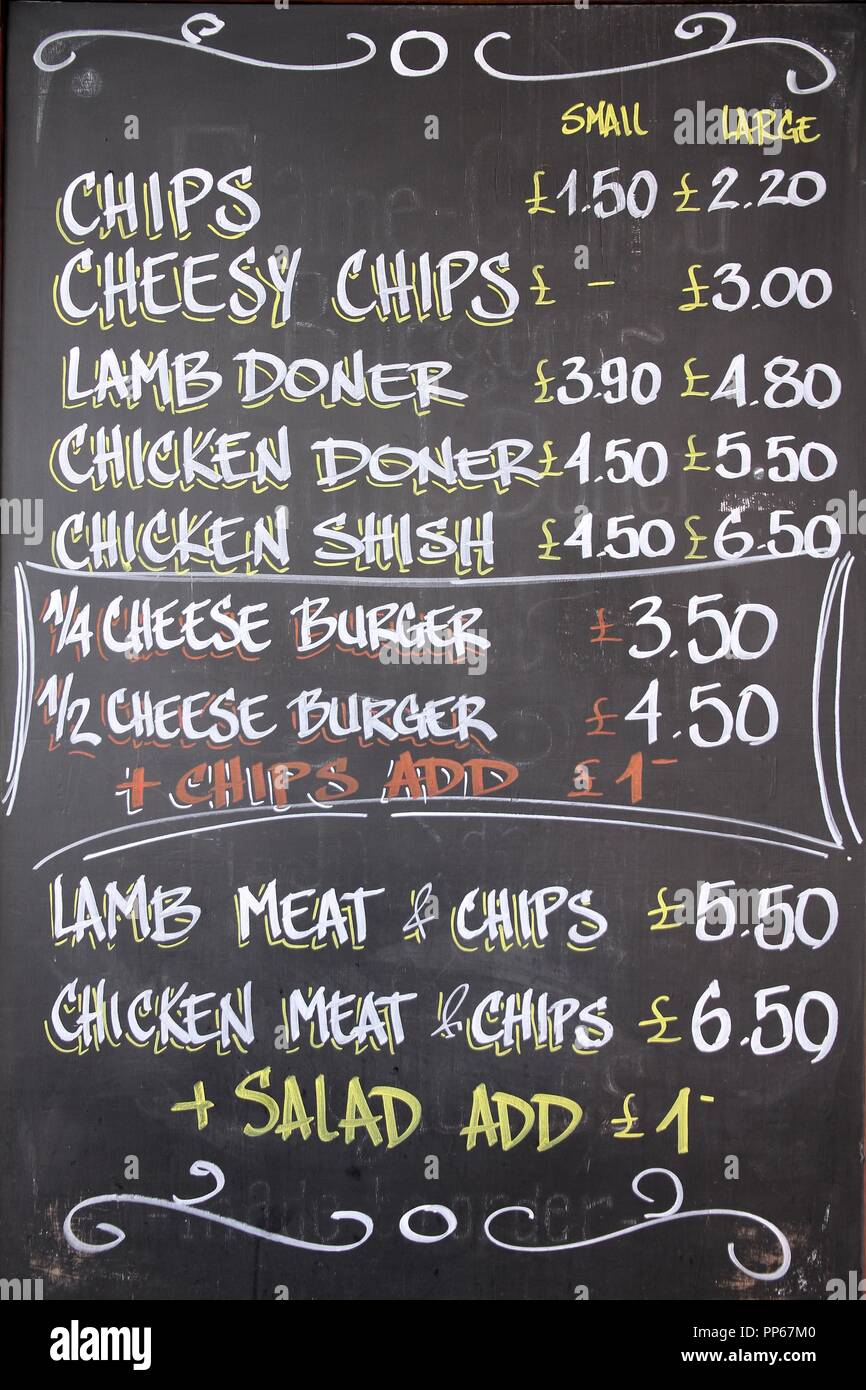 SMALL LARGE
CHIPS £1.50 £2.20
CHEESY CHIPS £ - £3.00
LAMB DONER £3.90 £4.80
CHICKEN DONER £4.50 £5.50
CHICKEN SHISH £4.50 £6.50
1/4 CHEESE BURGER £3.50
1/2 CHEESE BURGER £4.50
+ CHIPS ADD £1-
LAMB MEAT & CHIPS £5.50
CHICKEN MEAT & CHIPS £6.50
+ SALAD ADD £1-
alamy
Image ID: PP67M0
www.alamy.com